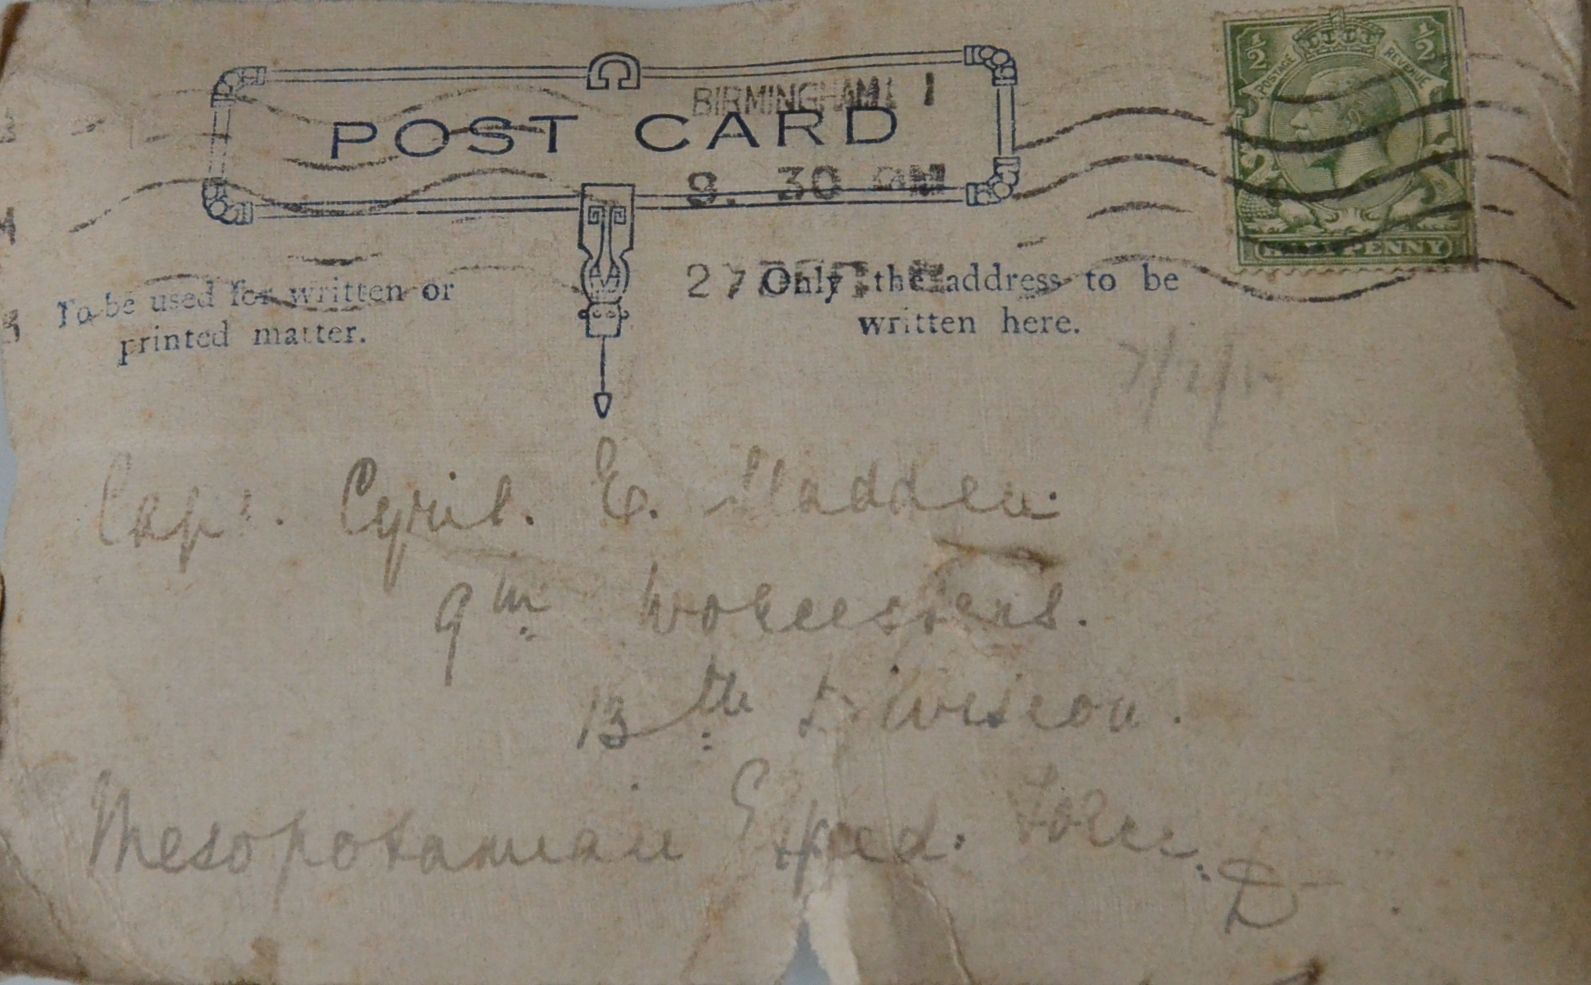 ½ POSTAGE REVENUE ½
BIRMINGHAM 1
POST CARD
9. 30 PM
27
HALF PENNY
To be used for written or
printed matter.
Only the address to be
written here.
Capt. Cyril. E. Gladden.
9th Worcesters.
13th Division.
Mesopotamian Exped. Force. D